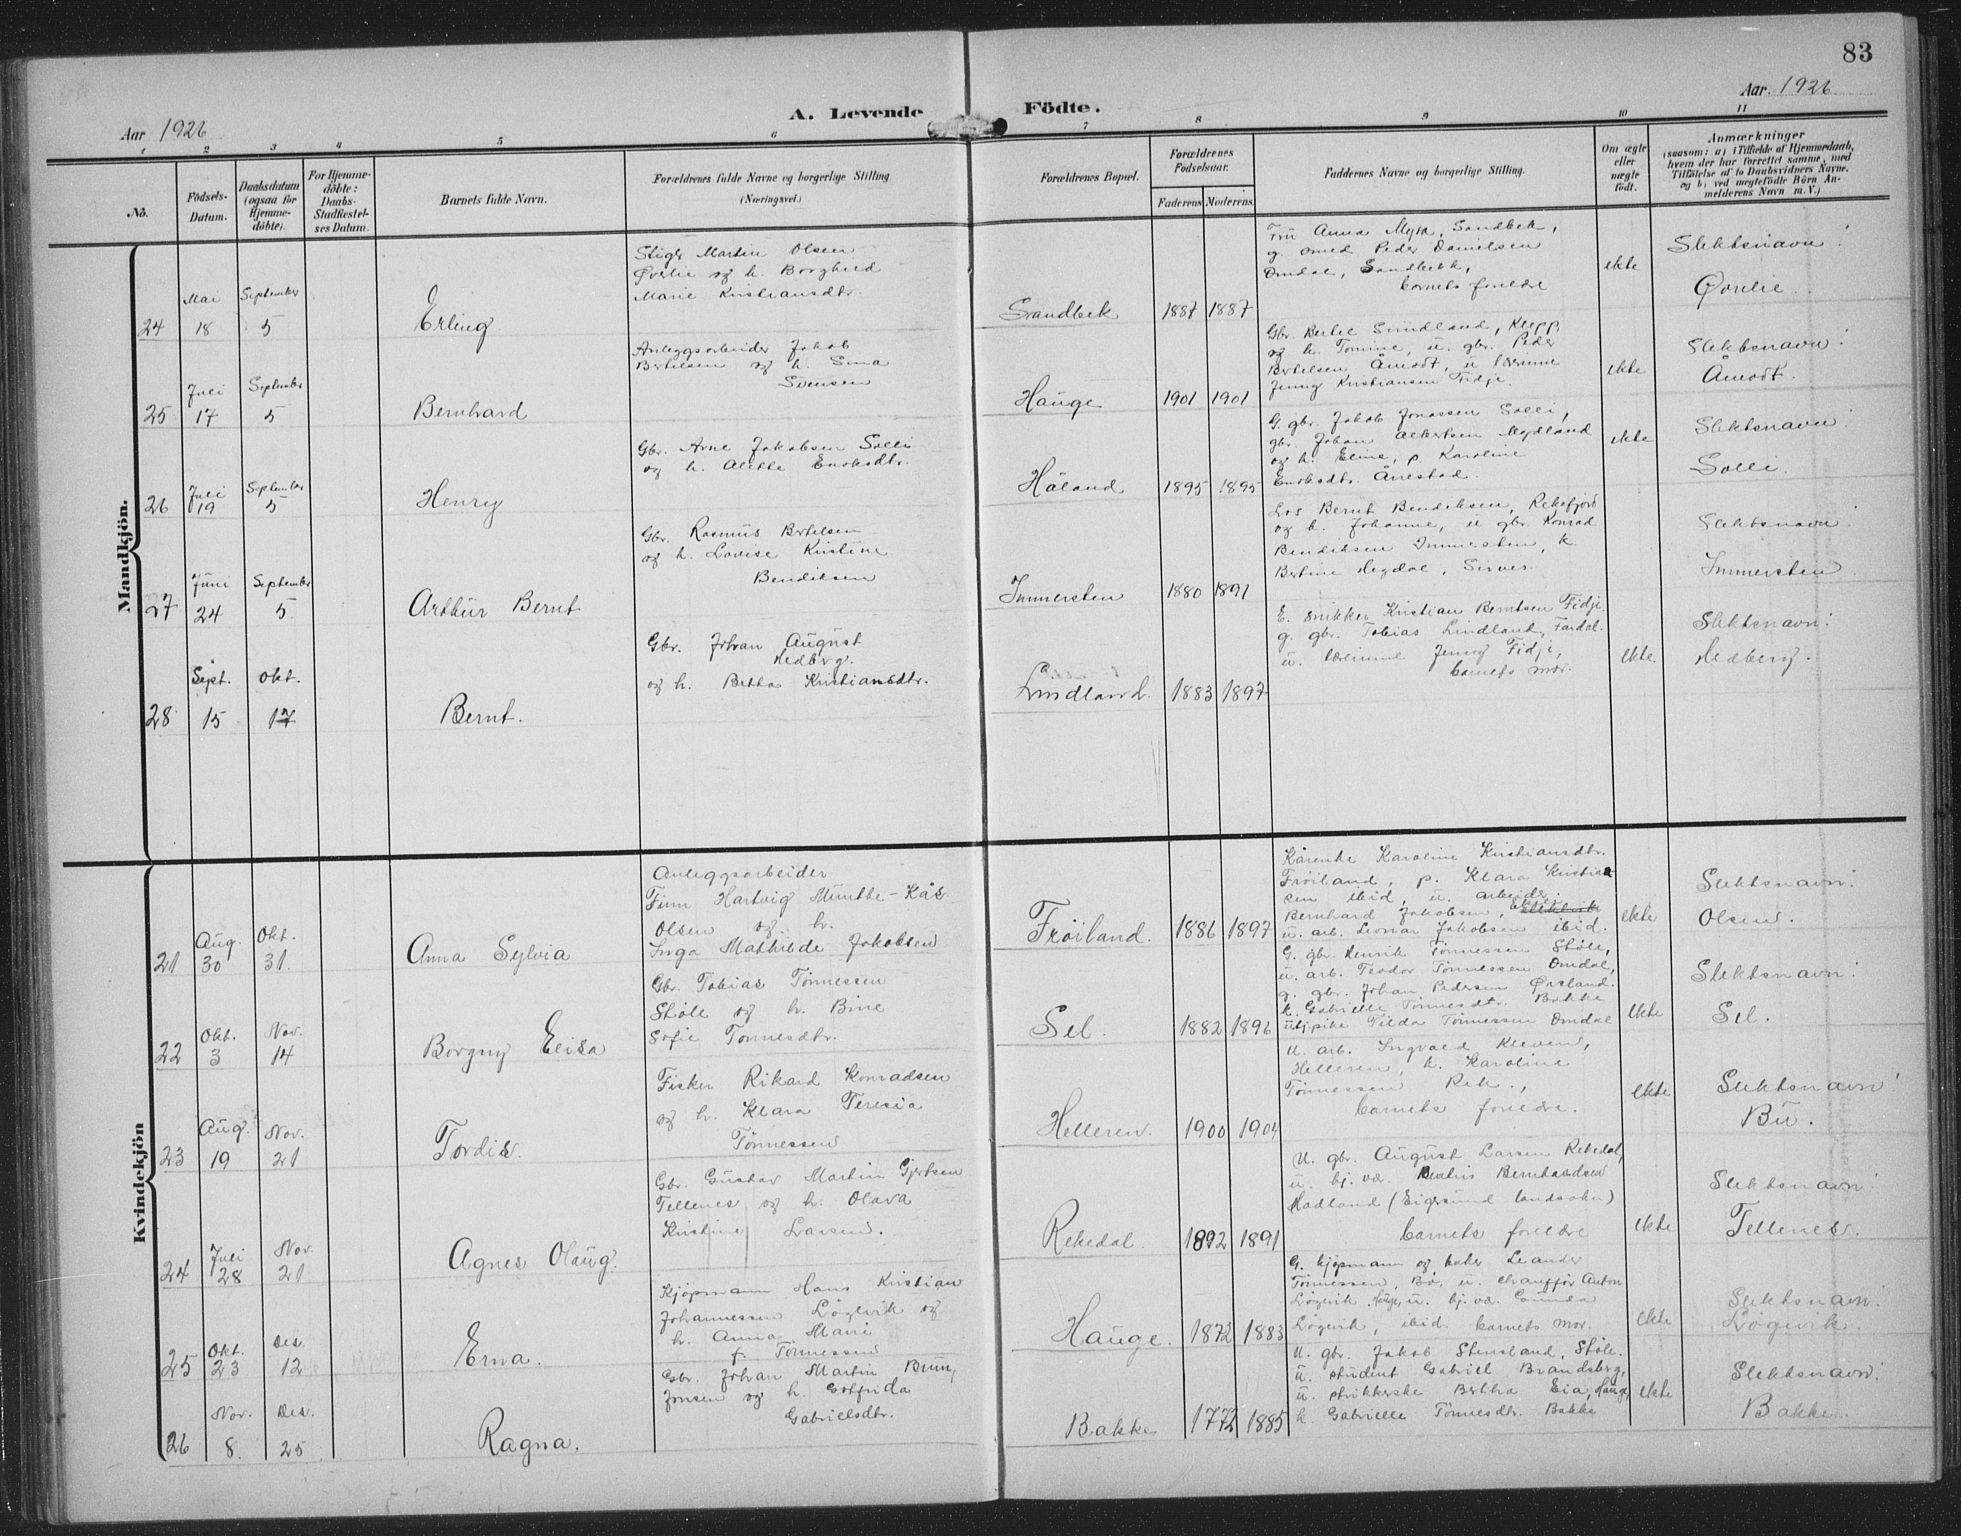 83
Aar 1926
A. Levende Födte.
Aar 1926
1 2 3 4 5 6 7 8 9 10 11
No.
Födsels-
Datum.
Daabsdatum
(ogsaa for
Hjemme-
döbte).
For Hjemme-
döbte:
Daabs-
Stadfæstel-
ses Datum.
Barnets fulde Navn.
Forældrenes fulde Navne og borgerlige Stilling
(Næringsvei.)
Forældrenes Bopæl.
Forældrenes
Födselsaar.
Faderens Moderens
Faddernes Navne og borgerlige Stilling.
Om ægte
eller
uægte
födt.
Anmærkninger
(saasom: a) i Tilfælde af Hjemmedaab,
hvem der har forrettet samme, med
Tilföielse af to Daabsvidners Navne,
og b) ved uægtefödte Börn An-
melderens Navn m. V.)
Mandkjön.
24
Mai
18
September
5
Erling
Stiger Martin Olsen
Øvrlie og h. Borghild
Marie Kristiansdtr.
Sandbek
1887 1887
Fru Anna Myra, Sandbek,
g. smed Peder Danielsen
Omdal, Sandbekk,
barnets foreldre
ekte
Slektsnavn:
Øvrelie.
25
Juli
17
September
5
Bernhard
Anleggsarbeider Jakob
Bertelsen og h. Sina
Svensen
Hauge
1901 1901
Gbr. Bertel Svindland, Klepp,
og h. Tomine, u. gbr. Peder
Bertelsen Åmodt, u. lærerinne
Jenny Kristiansen Fidje.
ekte
Slektsnavn:
Åmodt.
26
Juli
19
September
5
Henry
Gbr. Arne Jakobsen Solli
og h. Alette Enoksdtr.
Håland
1895 1895
G. gbr. Jakob Jonassen Solli,
gbr. Johan Albertsen Mydland
og h. Eline, p. Karoline
Enoksdtr. Årrestad.
ekte
Slektsnavn:
Solli.
27
Juni
24
September
5
Arthur Bernt
Gbr. Rasmus Bertelsen
og h. Lovise Kristine
Bendiksen
Immersten
1880 1891
Los Bernt Bendiksen, Rekefjord
og h. Johanne, u. gbr. Konrad
Bendiksen Immersten, k.
Bertine Hegdal, Sirnes.
Slektsnavn:
Immersten
28
Sept.
15
Okt.
17
Bernt.
Gbr. Johan August
Hedberg.
og h. Betha Kristiansdtr.
Lindland.
1883 1897
E. snikker Kristian Berntsen Fidje
g. gbr. Tobias Lindland, Fardal.
u. lærerinne Jenny Fidje,
barnets mor.
ekte.
Slektsnavn:
Hedberg.
Kvindekjön
21
Aug.
30
Okt.
31.
Anna Sylvia
Anleggsarbeider
Finn Hartvig Munthe-Kås
Olsen og h.
Inga Mathilde Jakobsen
Frøiland.
1886 1897
Karoline Kristiansdtr.
Frøiland, p. Klara Kristian
sen ibid, u. arbeider
Bernhard Jakobsen,
u. arb. Leonar Jakobsen ibid.
ekte
Slektsnavn:
Olsen.
22
Okt.
3
Nov.
14
Borgny Elisa
Gbr. Tobias Tønnessen
Støle og h. Bine
Sofie Tønnesdtr.
Sel.
1882 1896
G. gbr. Henrik Tønnessen Støle,
u. arb. Teodor Tønnessen Omdal,
g. gbr. Johan Pedersen Ørsland.
k. Gabrielle Tønnesdtr. Bakke
ugpike Tilda Tønnessen Omdal
ekte
Slektsnavn:
Sel.
23
Aug.
19
Nov.
21
Tordis.
Fisker Rikard Konradsen
og h. Klara Teresia
Tønnessen
Helleren.
1900 1904
U. arb. Ingvald Kleven,
Helleren, k. Karoline
Tønnessen Rek.,
barnets foreldre.
ekte
Slektsnavn:
Bu.
24
Juli
28
Nov.
21
Agnes Olaug.
Gbr. Gustav Martin Gjertsen
Tellenes og h. Olava
Kristine Larsen.
Rekedal.
1892 1891
U. gbr. August Larsen Rekedal,
u. hj. vær. Bernhardsen
Hadland (Eigersund landsokn)
barnets foreldre
ekte
Slektsnavn:
Tellenes.
25
Okt.
23
Des.
12
Erna.
Kjøpmann Hans Kristian
Johannessen Løgevik og
h. Anna Marie
f. Tønnessen
Hauge.
1872 1883
G. kjøpmann og baker Leander
Tønnessen, Bø, u. chauffør Anton
Løgevik, Hauge, u. hj. væ. Gunda
Løgevik, ibid. barnets mor.
ekte
Slektsnavn:
Løgevik.
26
Nov.
8.
Des.
25
Ragna.
Gbr. Johan Martin Brun,
Jonsen og h. Gotfrida
Gabrielsdtr.
Bakke
1772 1885
U. gbr. Jakob Stensland, Støle.
u. student Gabriel Brandsberg,
u. strikkerske Bertha Eia, Hauge,
k. Gabrielle Tønnesdtr. Bakke
ekte
Slektsnavn:
Bakke.